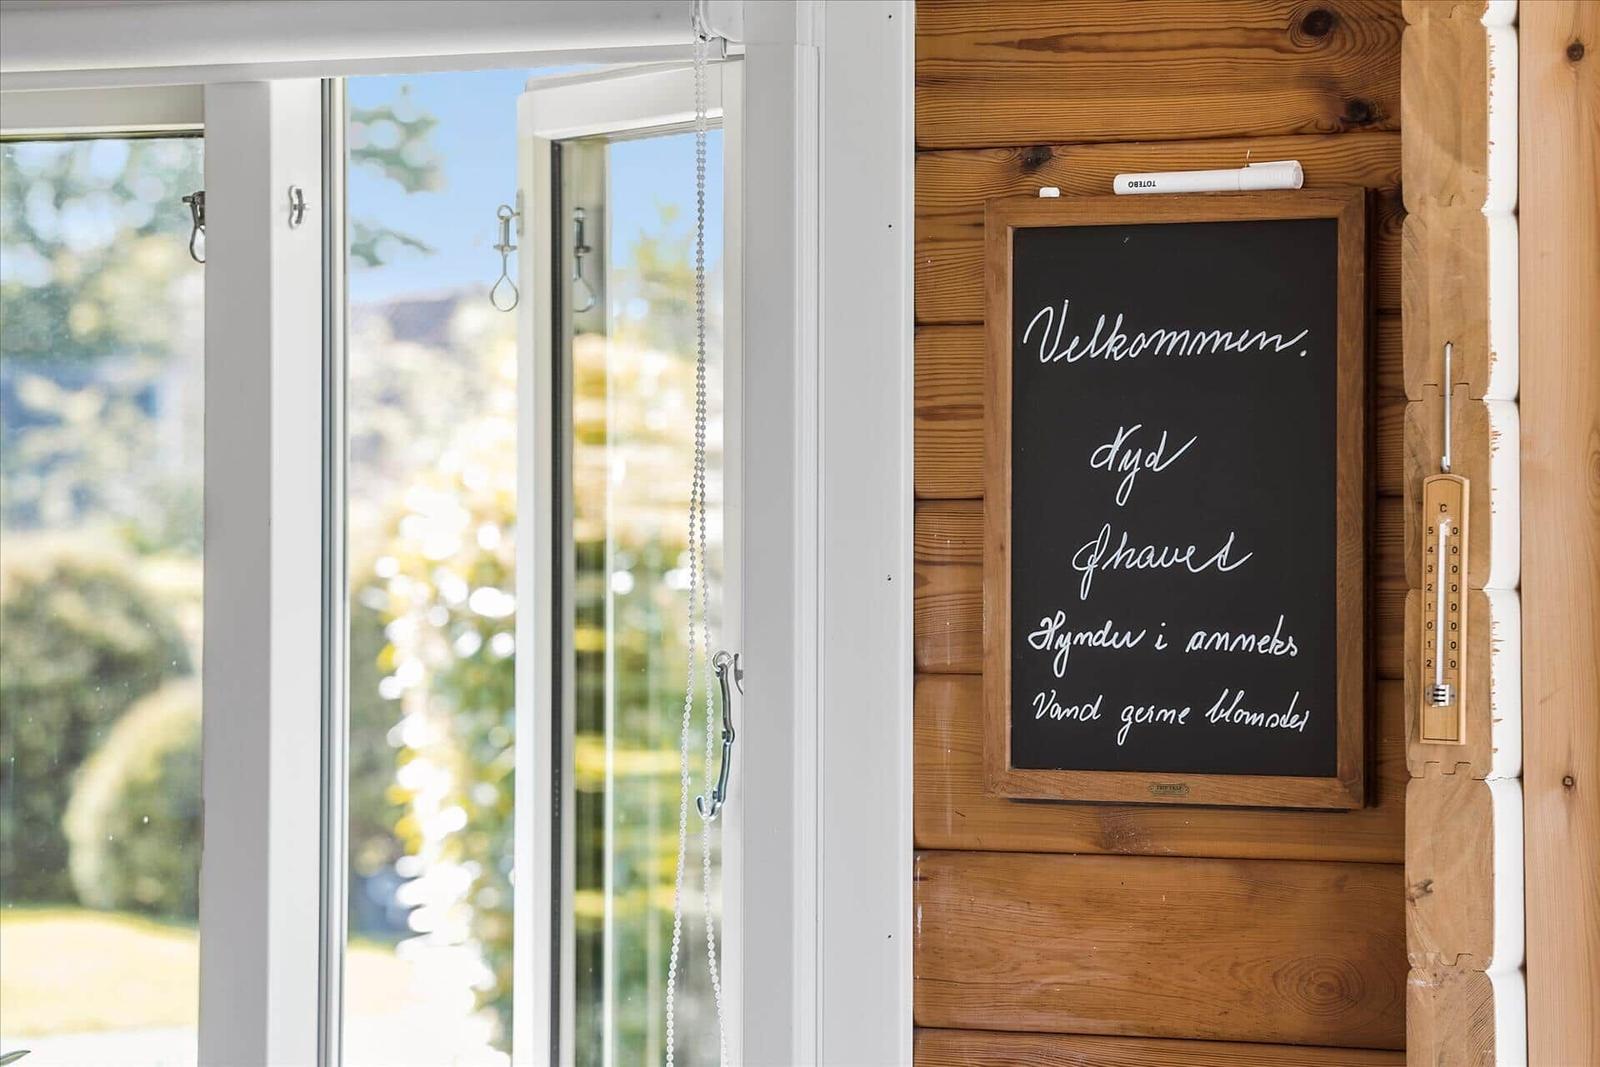 TOTEBO
Velkommen.
Nyd
Øhavet
Hynder i anneks
Vand gerne blomster
TRIP TRAP
C
5 0
4 0
3 0
2 0
1 0
0 0
1 0
2 0